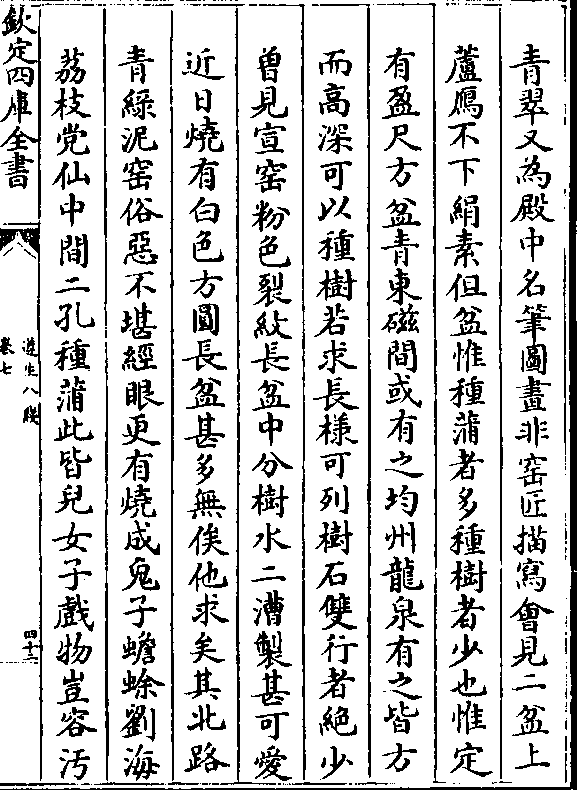 青翠又為殿中名筆圖畫非窑匠描寫會見二盆上
蘆鴈不下絹素但盆惟種蒲者多種樹者少也惟定
有盈尺方盆青東磁間或有之均州龍泉有之皆方
而高深可以種樹若求長様可列樹石雙行者絶少
曽見宣窑粉色裂紋長盆中分樹水二漕製甚可愛
近日燒有白色方圓長盆甚多無俟他求矣其北路
青綠泥窑俗惡不堪經眼更有燒成兔子蟾蜍劉海
荔枝党仙中間二孔種蒲此皆兒女子戲物豈容汚
欽定四庫全書
遵生八牋
卷七
四十二